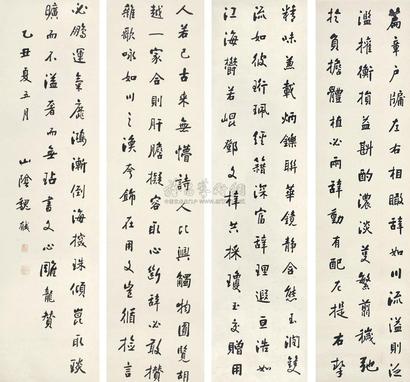 篇章戶牖左右相瞰辭如川流溢則泛
濫權衡損益斟酌濃淡芟繁翦穢弛
於負擔體植必兩辭動有配左提右挈
精味兼載炳爍聯華鏡靜含態玉潤雙
流如彼珩珮經籍深富辭理遐亘浩如
江海鬱若崐鄧文梓共採瓊玉交贈用
人若己古來無懵詩人比興觸物圓覽胡
越一家合則肝膽擬容取心斷辭必敢攢
雜歌咏如川之渙夸飾在用文豈循檢言
必鵬運氣靡鴻漸倒海探珠傾崑取琰
曠而不溢奢而無玷 書文心雕龍贊
乙丑夏五月 山陰魏戫